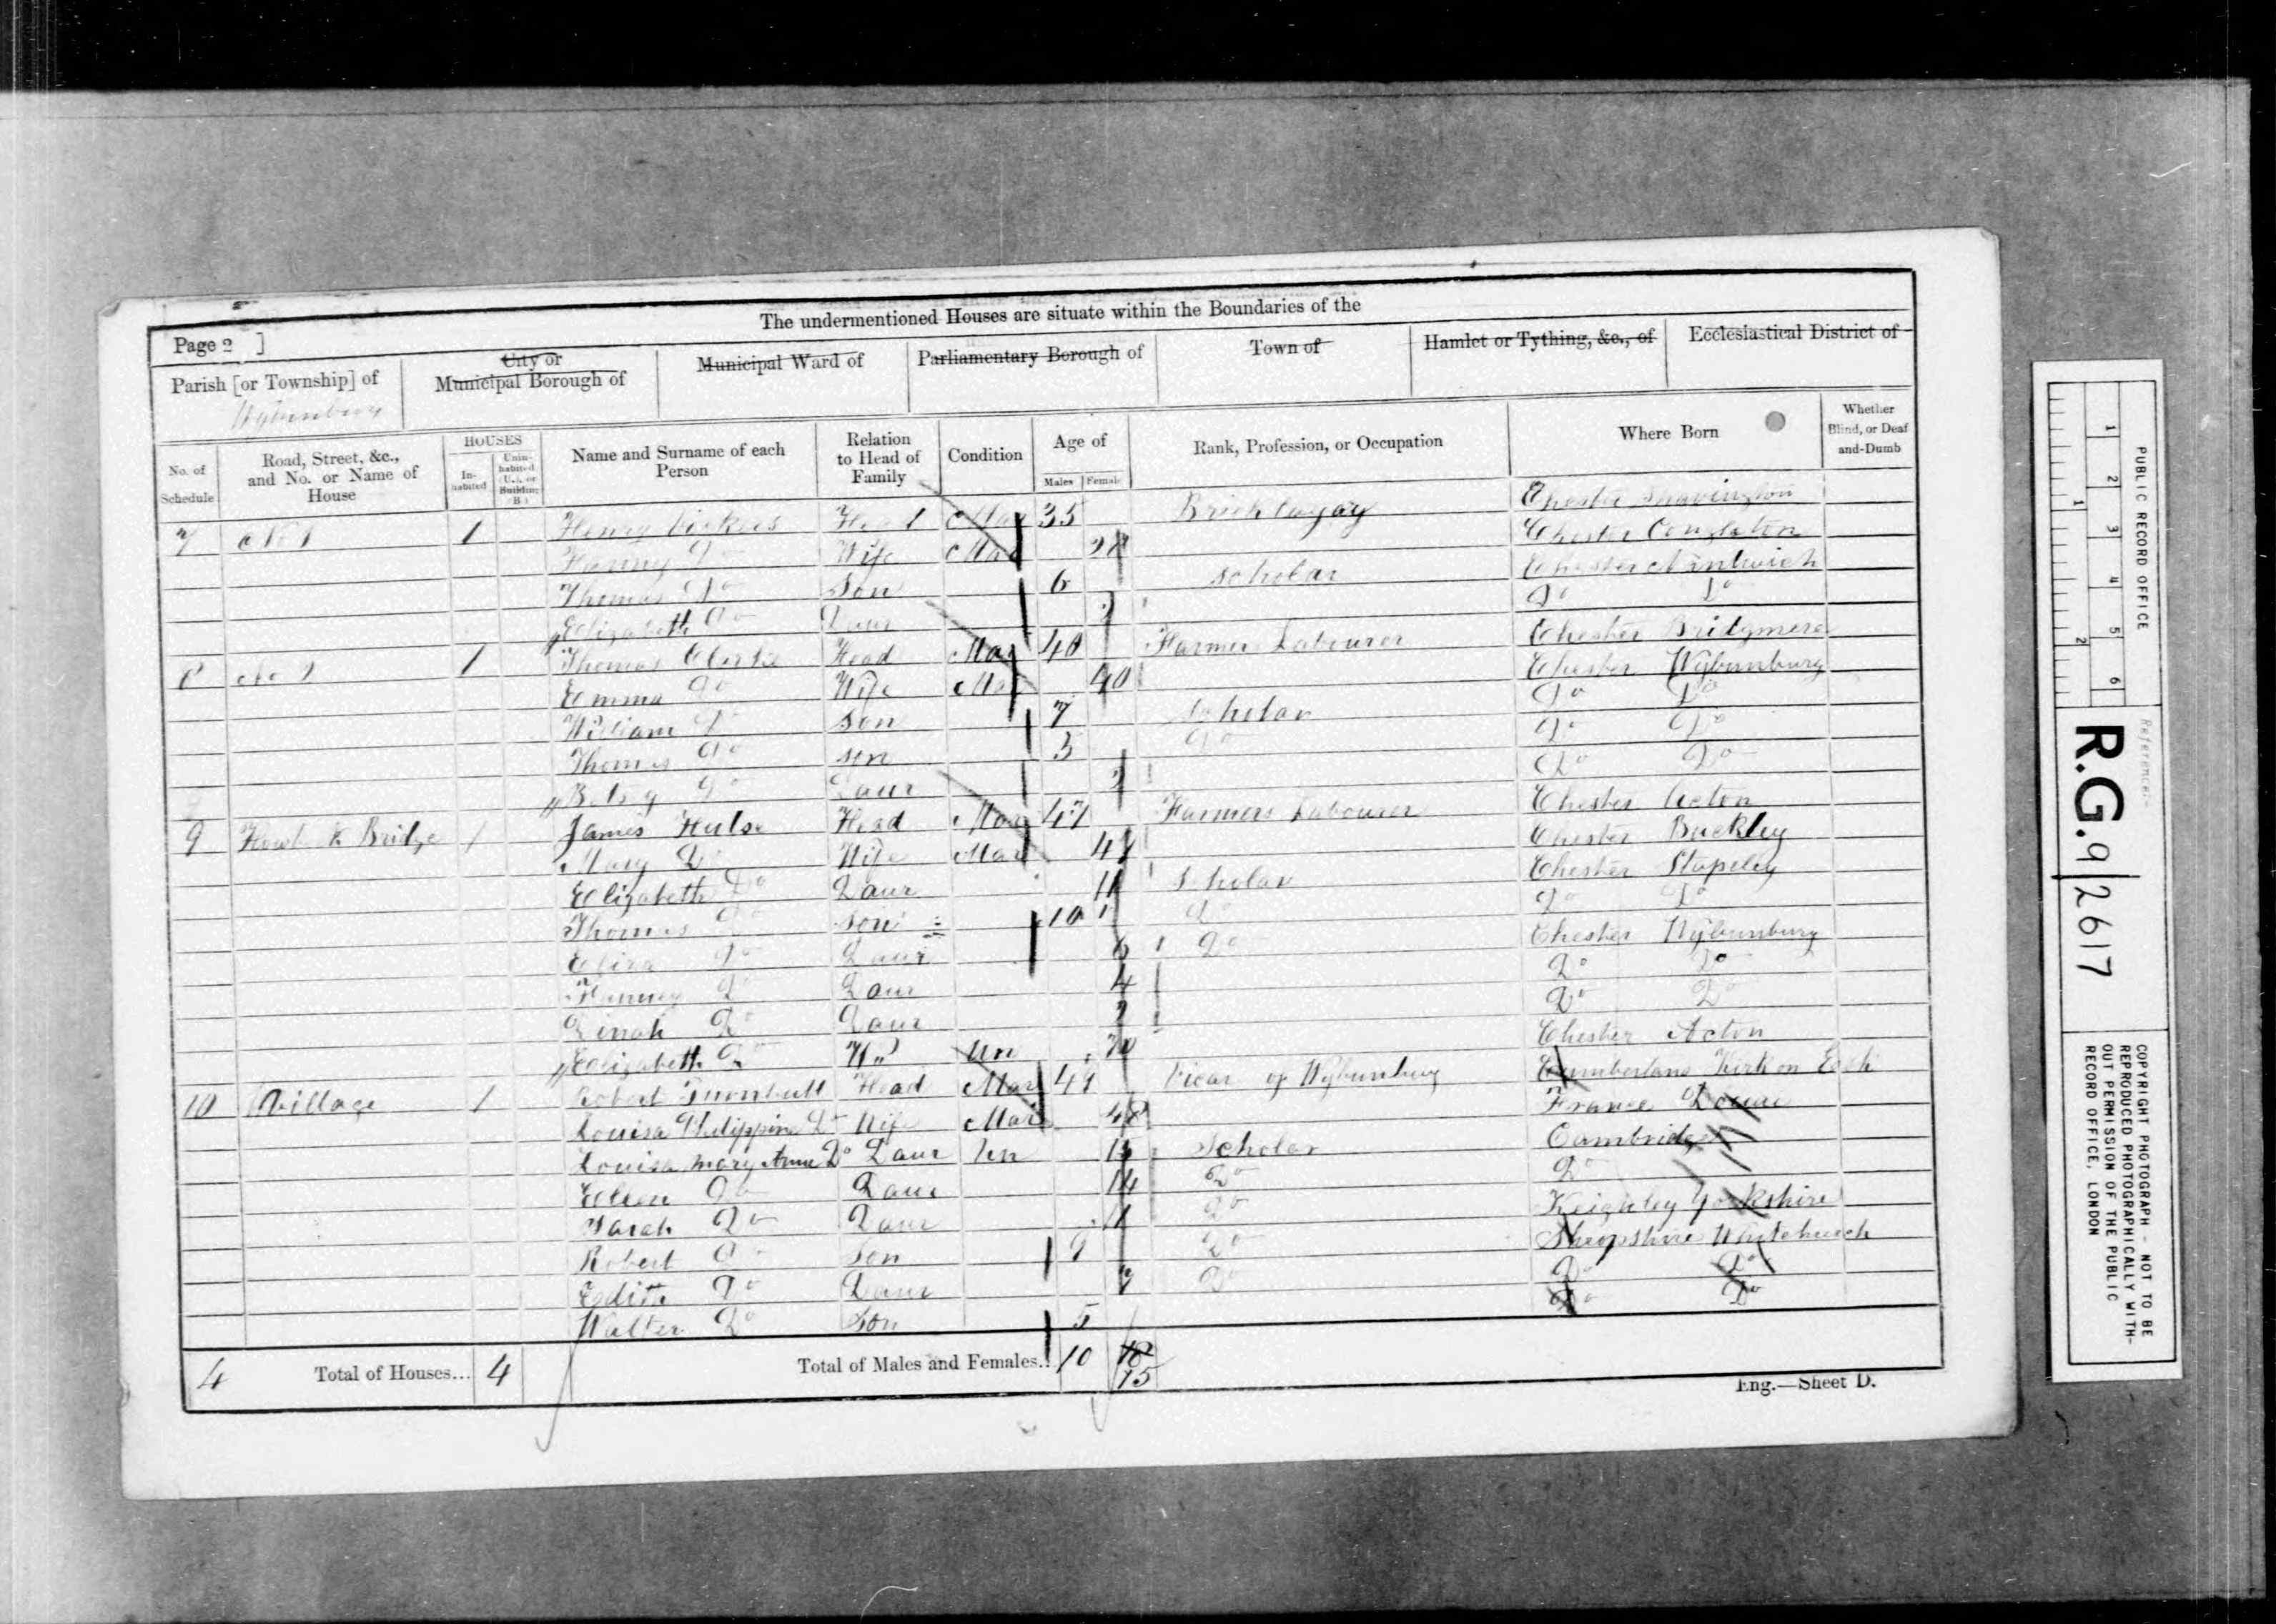 The undermentioned Houses are situate within the Boundaries of the
Page 2 ]
Parish [or Township] of
Wybunbury
City or Municipal Borough of
Municipal Ward of
Parliamentary Borough of
Town of
Hamlet or Tything, &c., of
Ecclesiastical District of
No. of Schedule
Road, Street, &c., and No. or Name of House
HOUSES
In-habited
Unin-habited (U.), or Building (B.)
Name and Surname of each Person
Relation to Head of Family
Condition
Age of
Males
Females
Rank, Profession, or Occupation
Where Born
Whether Blind, or Deaf-and-Dumb
7 No 1 1 Henry Vickers Head Mar 35 Chester
Do Wife Mar 28 Chester Congleton
Thomas Do Son 6 Scholar Chester Nantwich
Elizabeth Do Daur Do Do
8 No 2 1 Thomas Clarke Head Mar 40 Farmer Labourer Chester Bridgmere
Emma Do Wife Mar 40 Chester Wybunbury
William Do Son 7 Scholar Do Do
Thomas Do Son 5 Do Do Do
Do Daur Do Do
9 Bridge 1 James Hulse Head Mar 47 Farmers Labourer Chester Acton
Mary Do Wife Mar Chester Buckley
Elizabeth Do Daur 11 Scholar Chester Stapeley
Thomas Do Son 10 Do Do Do
Eliza Do Daur 6 Do Chester Wybunbury
Do Daur 4 Do Do
Dinah Do Daur 2 Do Do
Elizabeth Do Un Chester Acton
10 Village 1 Robert Turnbull Head Mar Vicar of Wybunbury Cumberland Kirk on Esk
Louisa Philippine Do Wife Mar 48 France
Louisa Mary Anne Do Daur Un 15 Scholar Cambridge
Ellen Do Daur 14 Do Do
Sarah Do Daur 11 Do Keighley Yorkshire
Robert Do Son 9 Do Shropshire Whitchurch
Edith Do Daur 7 Do Do Do
Walter Do Son 5 Do Do
4 Total of Houses... 4 Total of Males and Females... 10 18 15
Eng.—Sheet D.
PUBLIC RECORD OFFICE
1 2 3 4 5 6
1 2
Reference:-
R.G. 9/2617
COPYRIGHT PHOTOGRAPH - NOT TO BE
REPRODUCED PHOTOGRAPHICALLY WITH-
OUT PERMISSION OF THE PUBLIC
RECORD OFFICE, LONDON